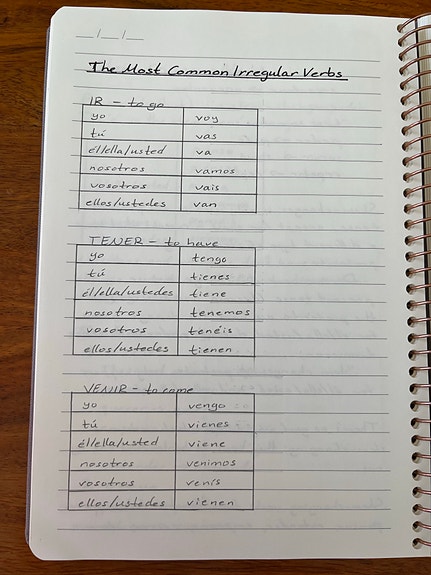 __/__/__
The Most Common Irregular Verbs
IR - to go
yo voy
tú vas
él/ella/usted va
nosotros vamos
vosotros vais
ellos/ustedes van
TENER - to have
yo tengo
tú tienes
él/ella/ustedes tiene
nosotros tenemos
vosotros tenéis
ellos/ustedes tienen
VENIR - to come
yo vengo
tú vienes
él/ella/usted viene
nosotros venimos
vosotros venís
ellos/ustedes vienen